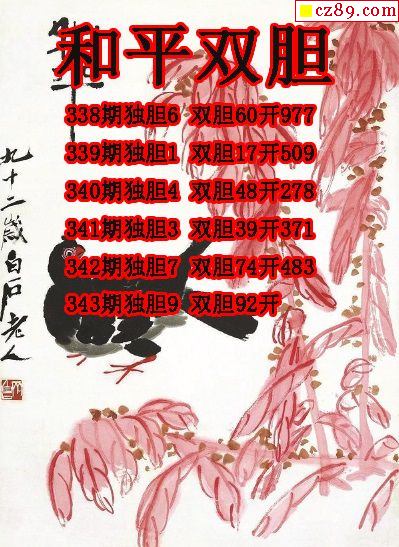 cz89.com
和平双胆
338期独胆6 双胆60开977
339期独胆1 双胆17开509
340期独胆4 双胆48开278
341期独胆3 双胆39开371
342期独胆7 双胆74开483
343期独胆9 双胆92开
九十二岁白石老人